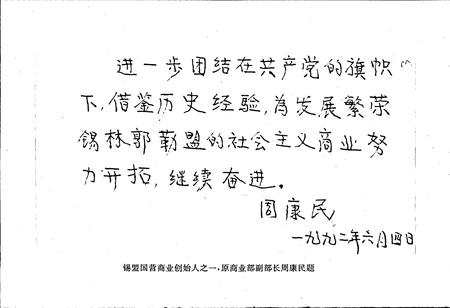 进一步团结在共产党的旗帜
下,借鉴历史经验,为发展繁荣
锡林郭勒盟的社会主义商业努
力开拓,继续奋进。
周康民
一九九二年六月四日
锡盟国营商业创始人之一,原商业部副部长周康民题